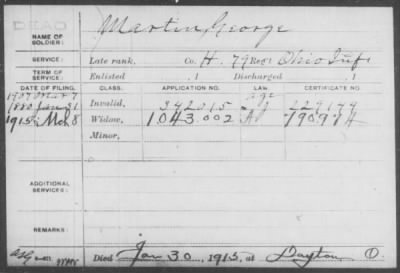 DEAD
NAME OF SOLDIER: Martin, George
SERVICE: Late rank, Co. H. 79 Reg't Ohio Inf.
TERM OF SERVICE: Enlisted , 1 Discharged , 1
DATE OF FILING. CLASS. APPLICATION NO. LAW. CERTIFICATE NO.
1907 Mar 7 age
1880 Jan 31 Invalid, 342015 229179
1915 Mch 8 Widow, 1.043.002 790974
Minor,
ADDITIONAL SERVICES:
REMARKS:
Died Jan 30, 1915, at Dayton O.